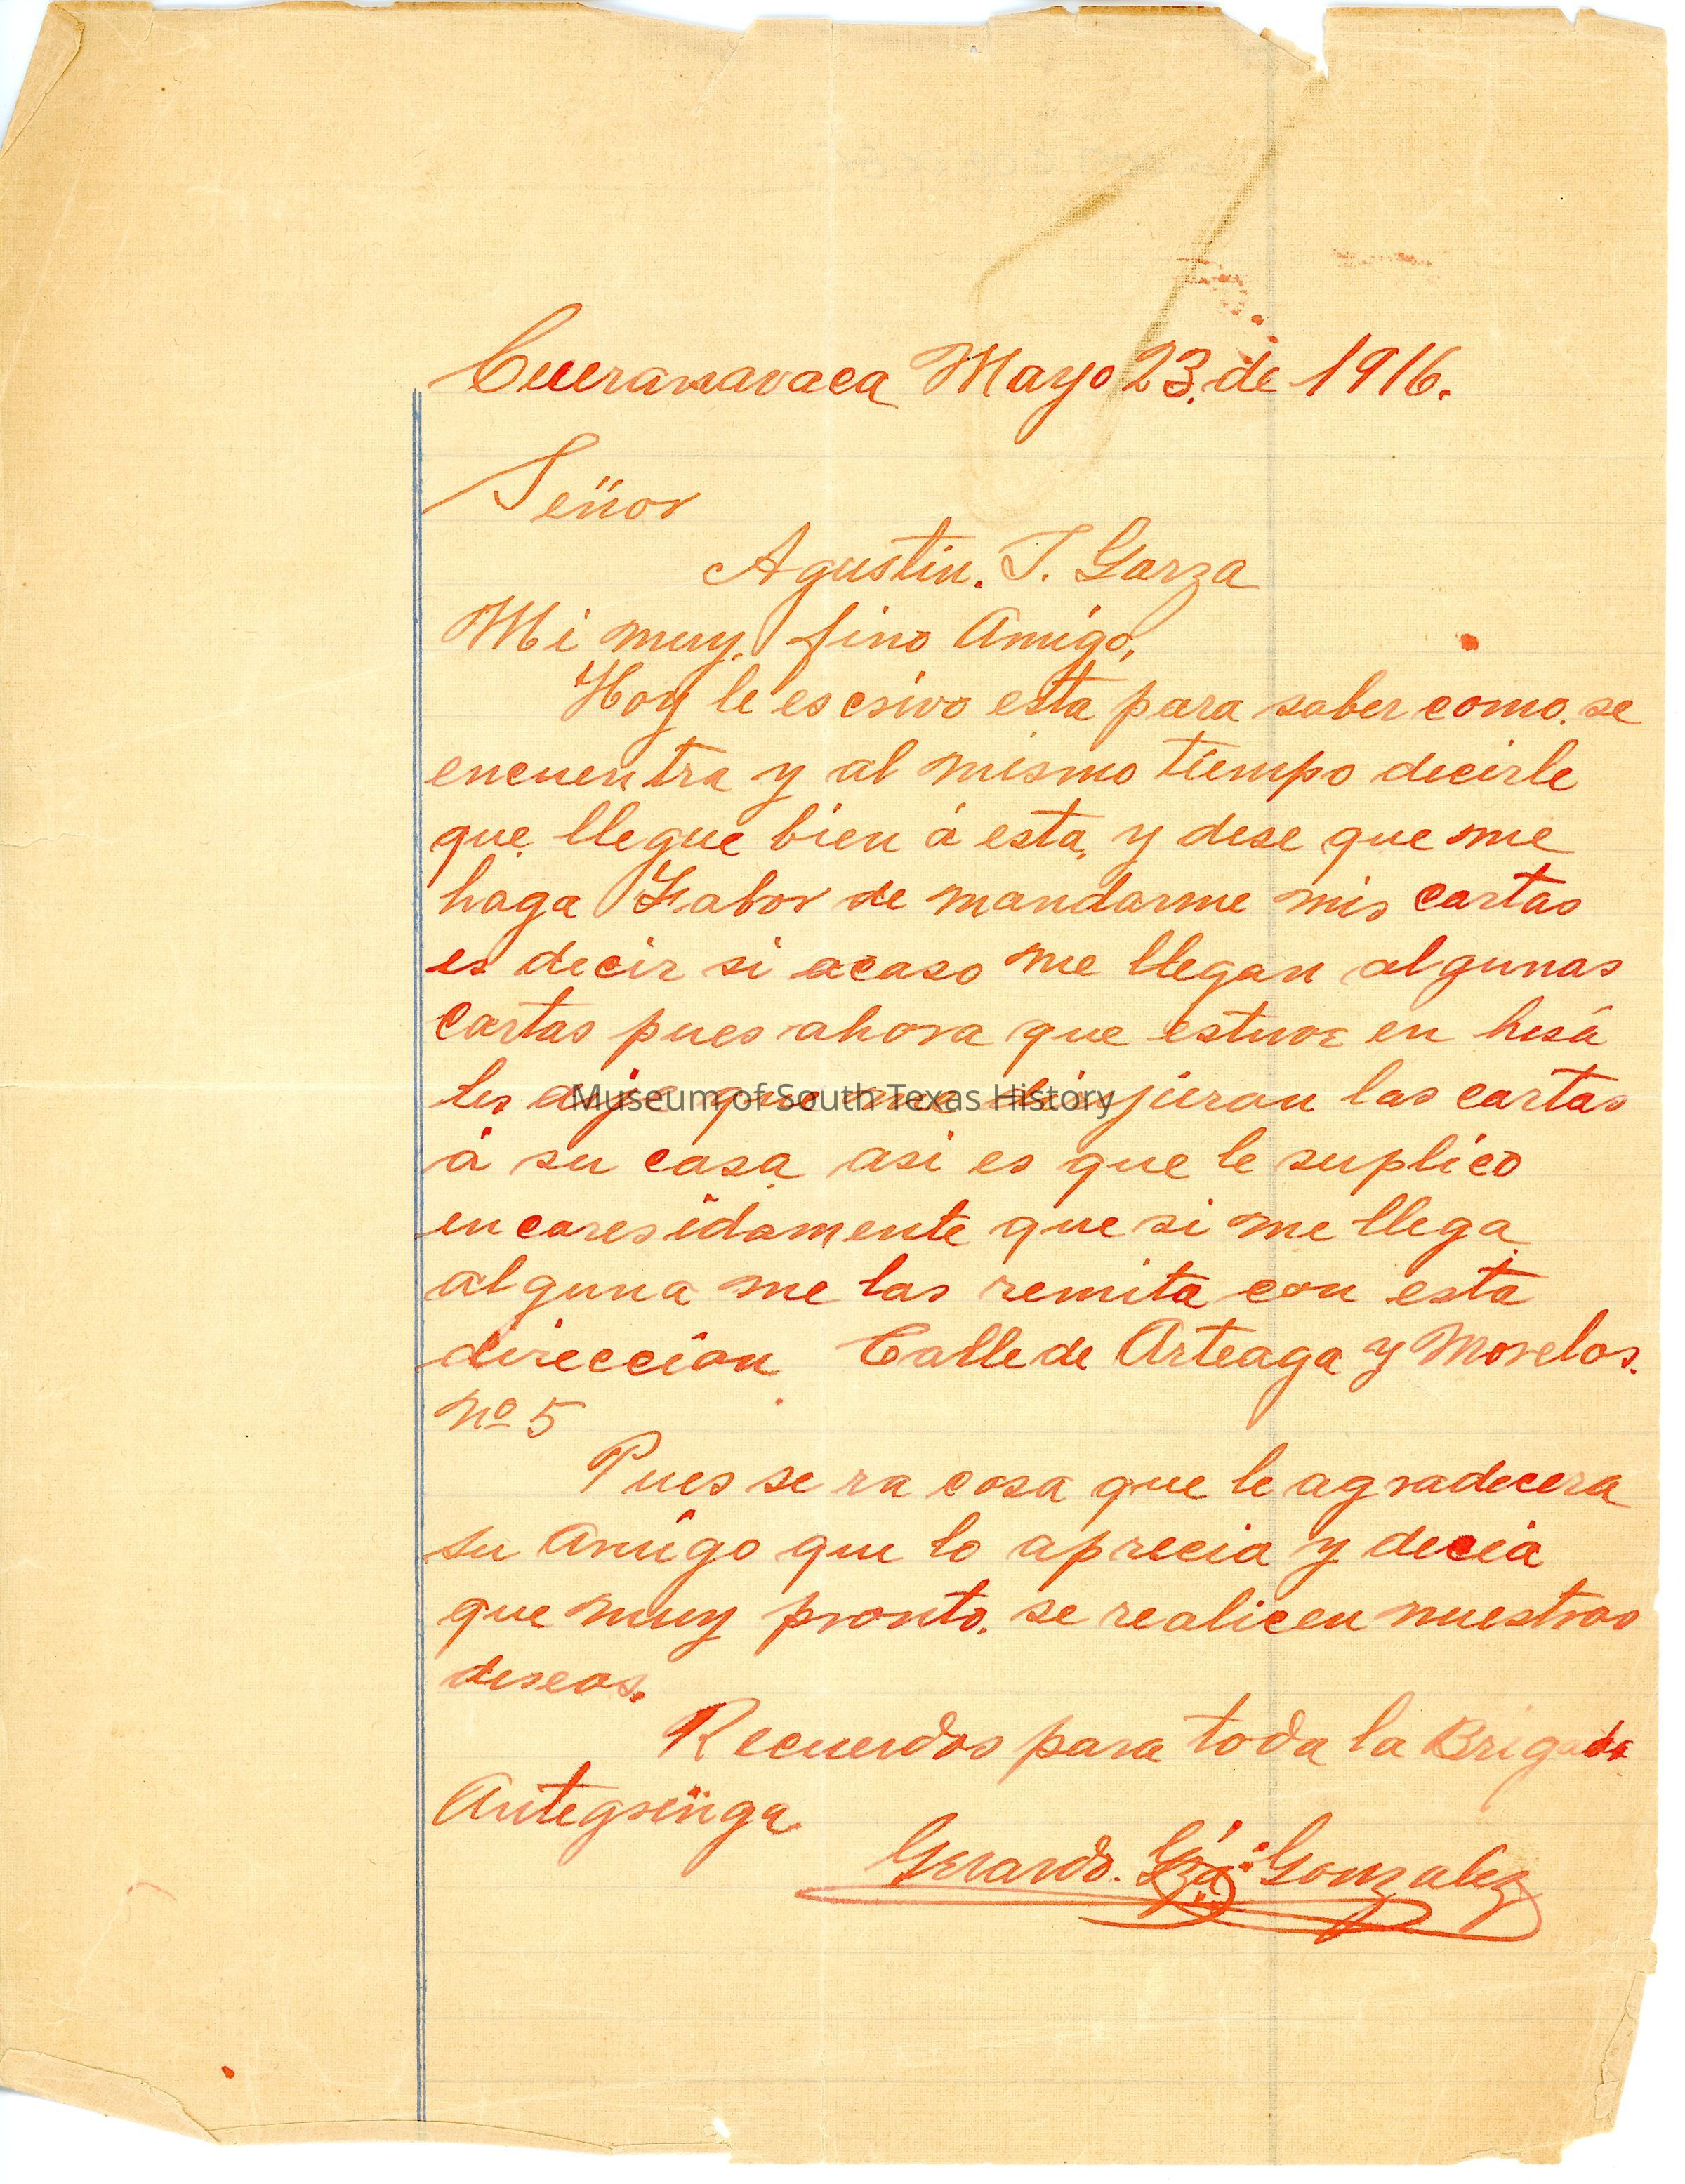 Cueranavaca Mayo 23. de 1916.
Señor
Agustin. S. Garza
Mi muy. fino Amigo,
Hoy le escrivo esta para saber como. se
encuentra y al mismo tiempo decirle
que llegue bien á esta, y dese que me
haga Fabor de mandarme mis cartas
es decir si acaso me llegan algunas
cartas pues ahora que estuve en hesa
les dije que me dirijieran las cartas
Museum of South Texas History
á su casa asi es que le suplico
encaresidamente que si me llega
alguna me las remita con esta
direccion Calle de Arteaga y Morelos.
Nº 5
Pues sera cosa que le agradecera
su Amigo que lo aprecia y decea
que muy pronto. se realicen nuestros
deseos.
Recuerdos para toda la Brigada
Gerardo. Gza: Gonzalez